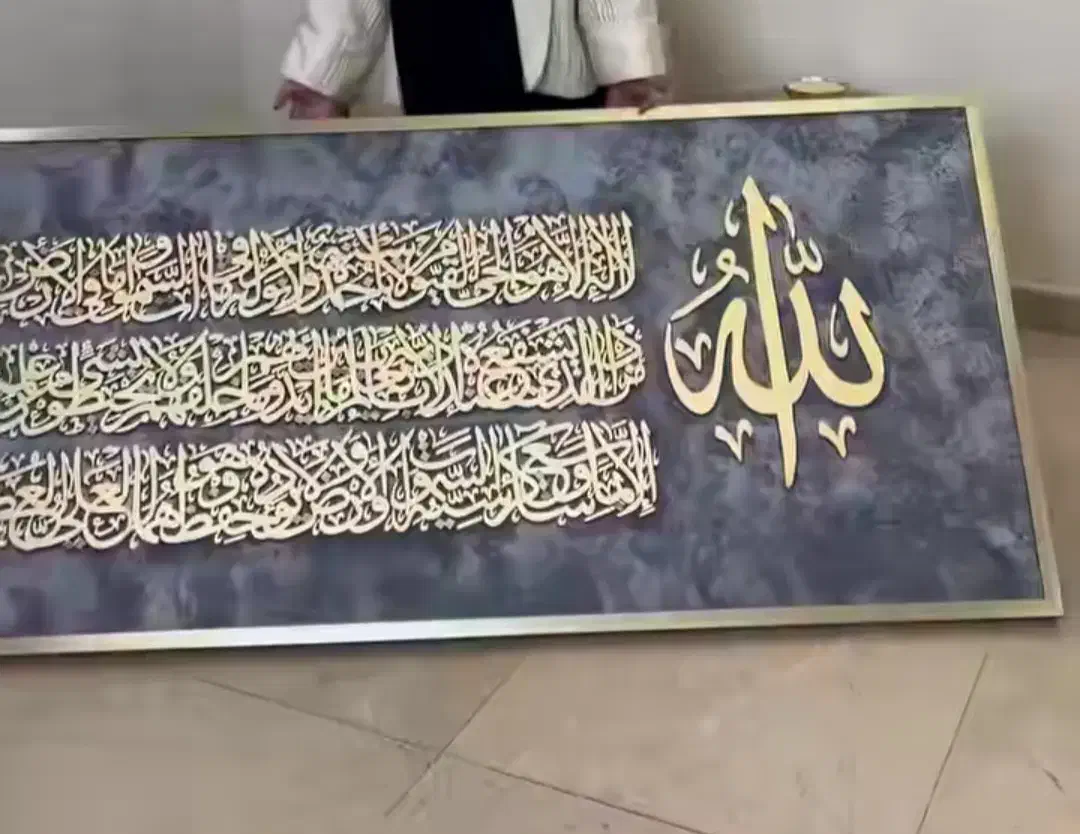 الله
لا إله إلا هو الحي القيوم لا تأخذه سنة ولا نوم له ما في السموات وما في الأرض
من ذا الذي يشفع عنده إلا بإذنه يعلم ما بين أيديهم وما خلفهم ولا يحيطون بشيء من
إلا بما شاء وسع كرسيه السموات والأرض ولا يؤده حفظهما وهو العلي